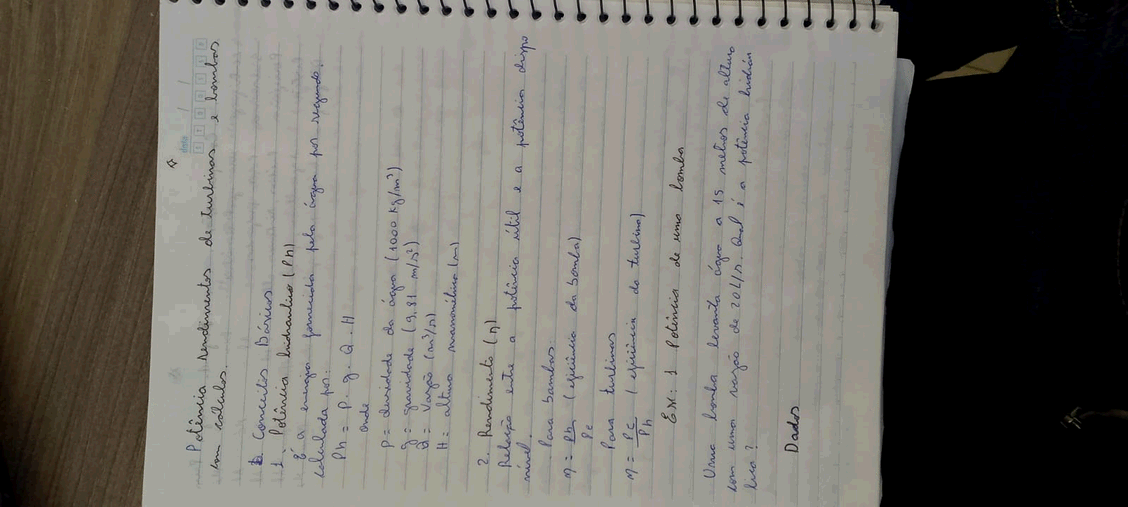 data / /
Potência rendimentos de turbinas e bombas
com calculos.
1. Conceitos Básicos
1. Potência hidraulica (Ph)
É a energia fornecida pela água por segundo,
calculada por:
Ph = P. g. Q. H
onde
P = densidade da água (1000 kg/m³)
g = gravidade (9,81 m/s²)
Q = Vazão (m³/s)
H = altura manométrica (m)
2. Rendimento (η)
Relação entre a potência útil e a potência dispo
nível.
Para bombas:
η = Ph/Pe (eficiência da bomba)
Para turbinas
η = Pe/Ph (eficiência da turbina)
Ex: 1 Potência de uma bomba
Uma bomba levanta água a 15 metros de altura
com uma vazão de 20L/s. Qual é a potência hidráu
lica?
Dados